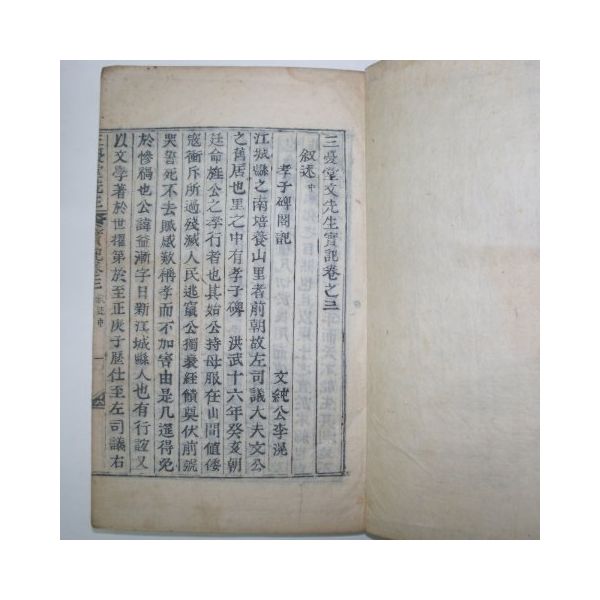 三憂堂文先生實記卷之三
叙述中
孝子碑閣記
文純公李滉
江城縣之南培養山里者前朝故左司議大夫文公
之舊居也里之中有孝子碑 洪武十六年癸亥朝
廷命旌公之孝行者也其始公持母服在山間値倭
寇衝斥所過殘滅人民逃竄公獨衰絰饋奠伏前號
哭誓死不去賊感歎稱孝而不加害由是几筵得免
於慘禍也公諱益漸字日新江城縣人也有行誼又
以文學著於世櫂第於至正庚子歷仕至左司議右
三憂堂先生 實記卷三 一